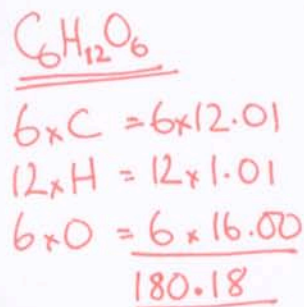 C₆H₁₂O₆
6×C = 6×12.01
12×H = 12×1.01
6×O = 6×16.00
180.18